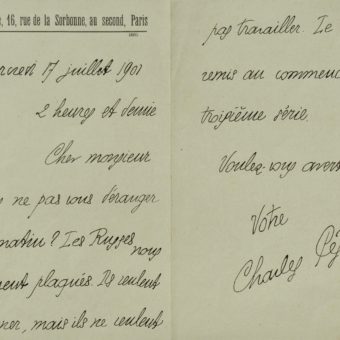 , 16, rue de la Sorbonne, au second, Paris
17 juillet 1901
2 heures et demie
Cher monsieur
ne pas vous déranger
matin ? Les Russes nous
plaqués. Ils veulent
, mais ils ne veulent
pas travailler. Le
remis au commenc
troisième série.
Voulez-vous avert
Votre
Charles Pé